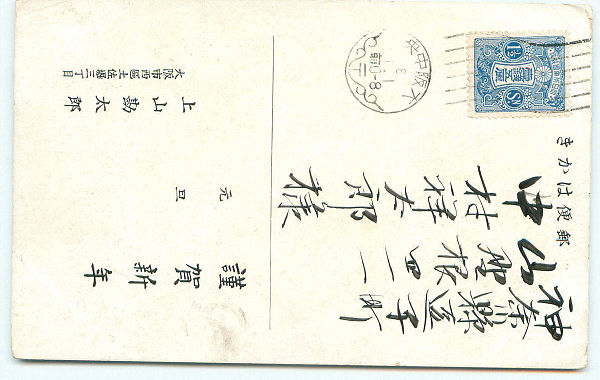 郵便はかき
神奈川縣逗子町
山
根四一一
中村祥太郎様
謹賀新年
元旦
大阪市西區土佐堀二丁目
上山勘太郎
大阪中央
前0-8
1½ Sn